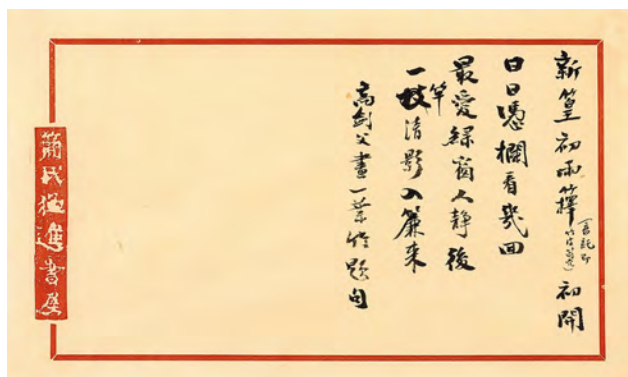 新篁初雨籜(音託即)初開
日日憑欄看幾回
最愛綠窗人靜後
一枝竿清影入簾來
高劍父畫一葉竹題句
簡氏猛進書屋